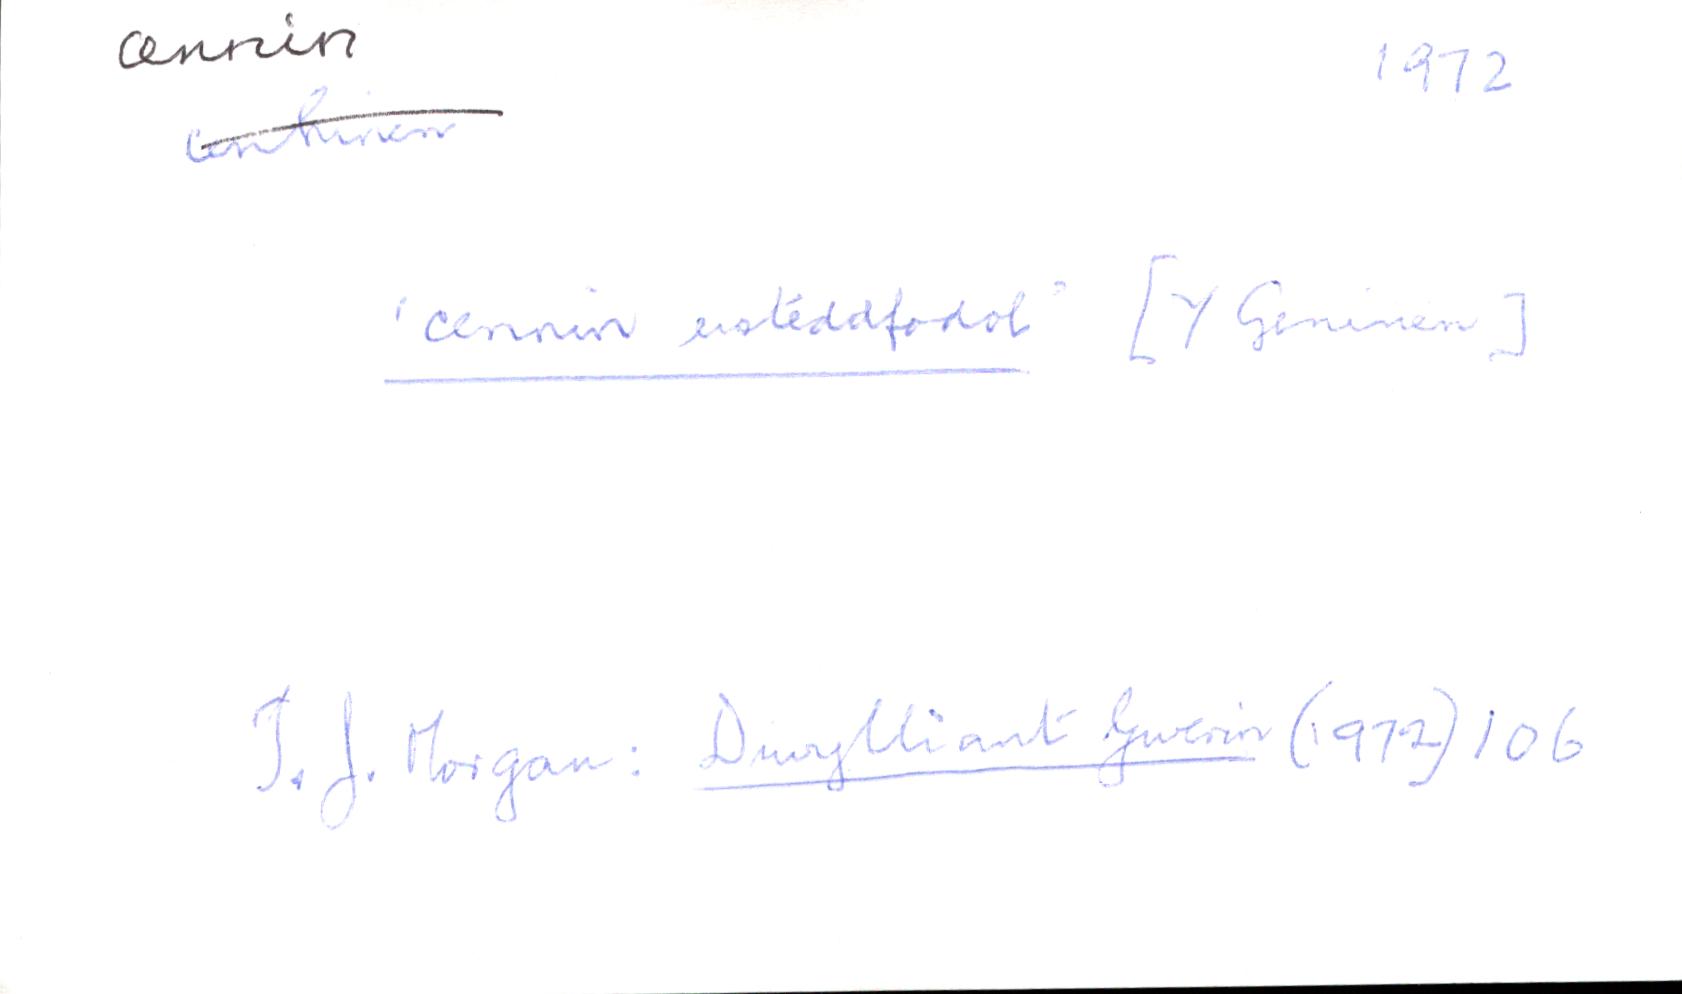 cennin
1972
cenhinen
'cennin eisteddfodol' [Y Geninen]
T. J. Morgan: Diwylliant Gwerin (1972) 106